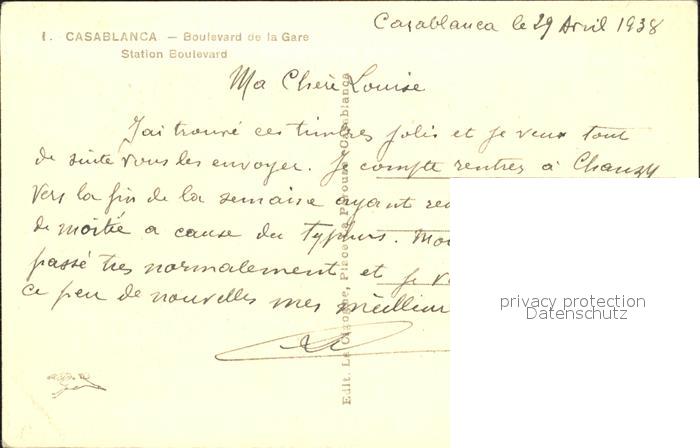 1. CASABLANCA — Boulevard de la Gare
Station Boulevard
Casablanca le 29 Avril 1938
Ma Cherè Louise
J'ai trouvé ces timbres jolis et je veux tout
de suite vous les envoyer. Je compte rentrer à Chanzy
vers la fin de la semaine ayant
de moitié a cause du typhus.
passé tres normalement et je
ce peu de nouvelles mes meilleur
Edit. La Cigogne, Place Casablanca
privacy protection
Datenschutz